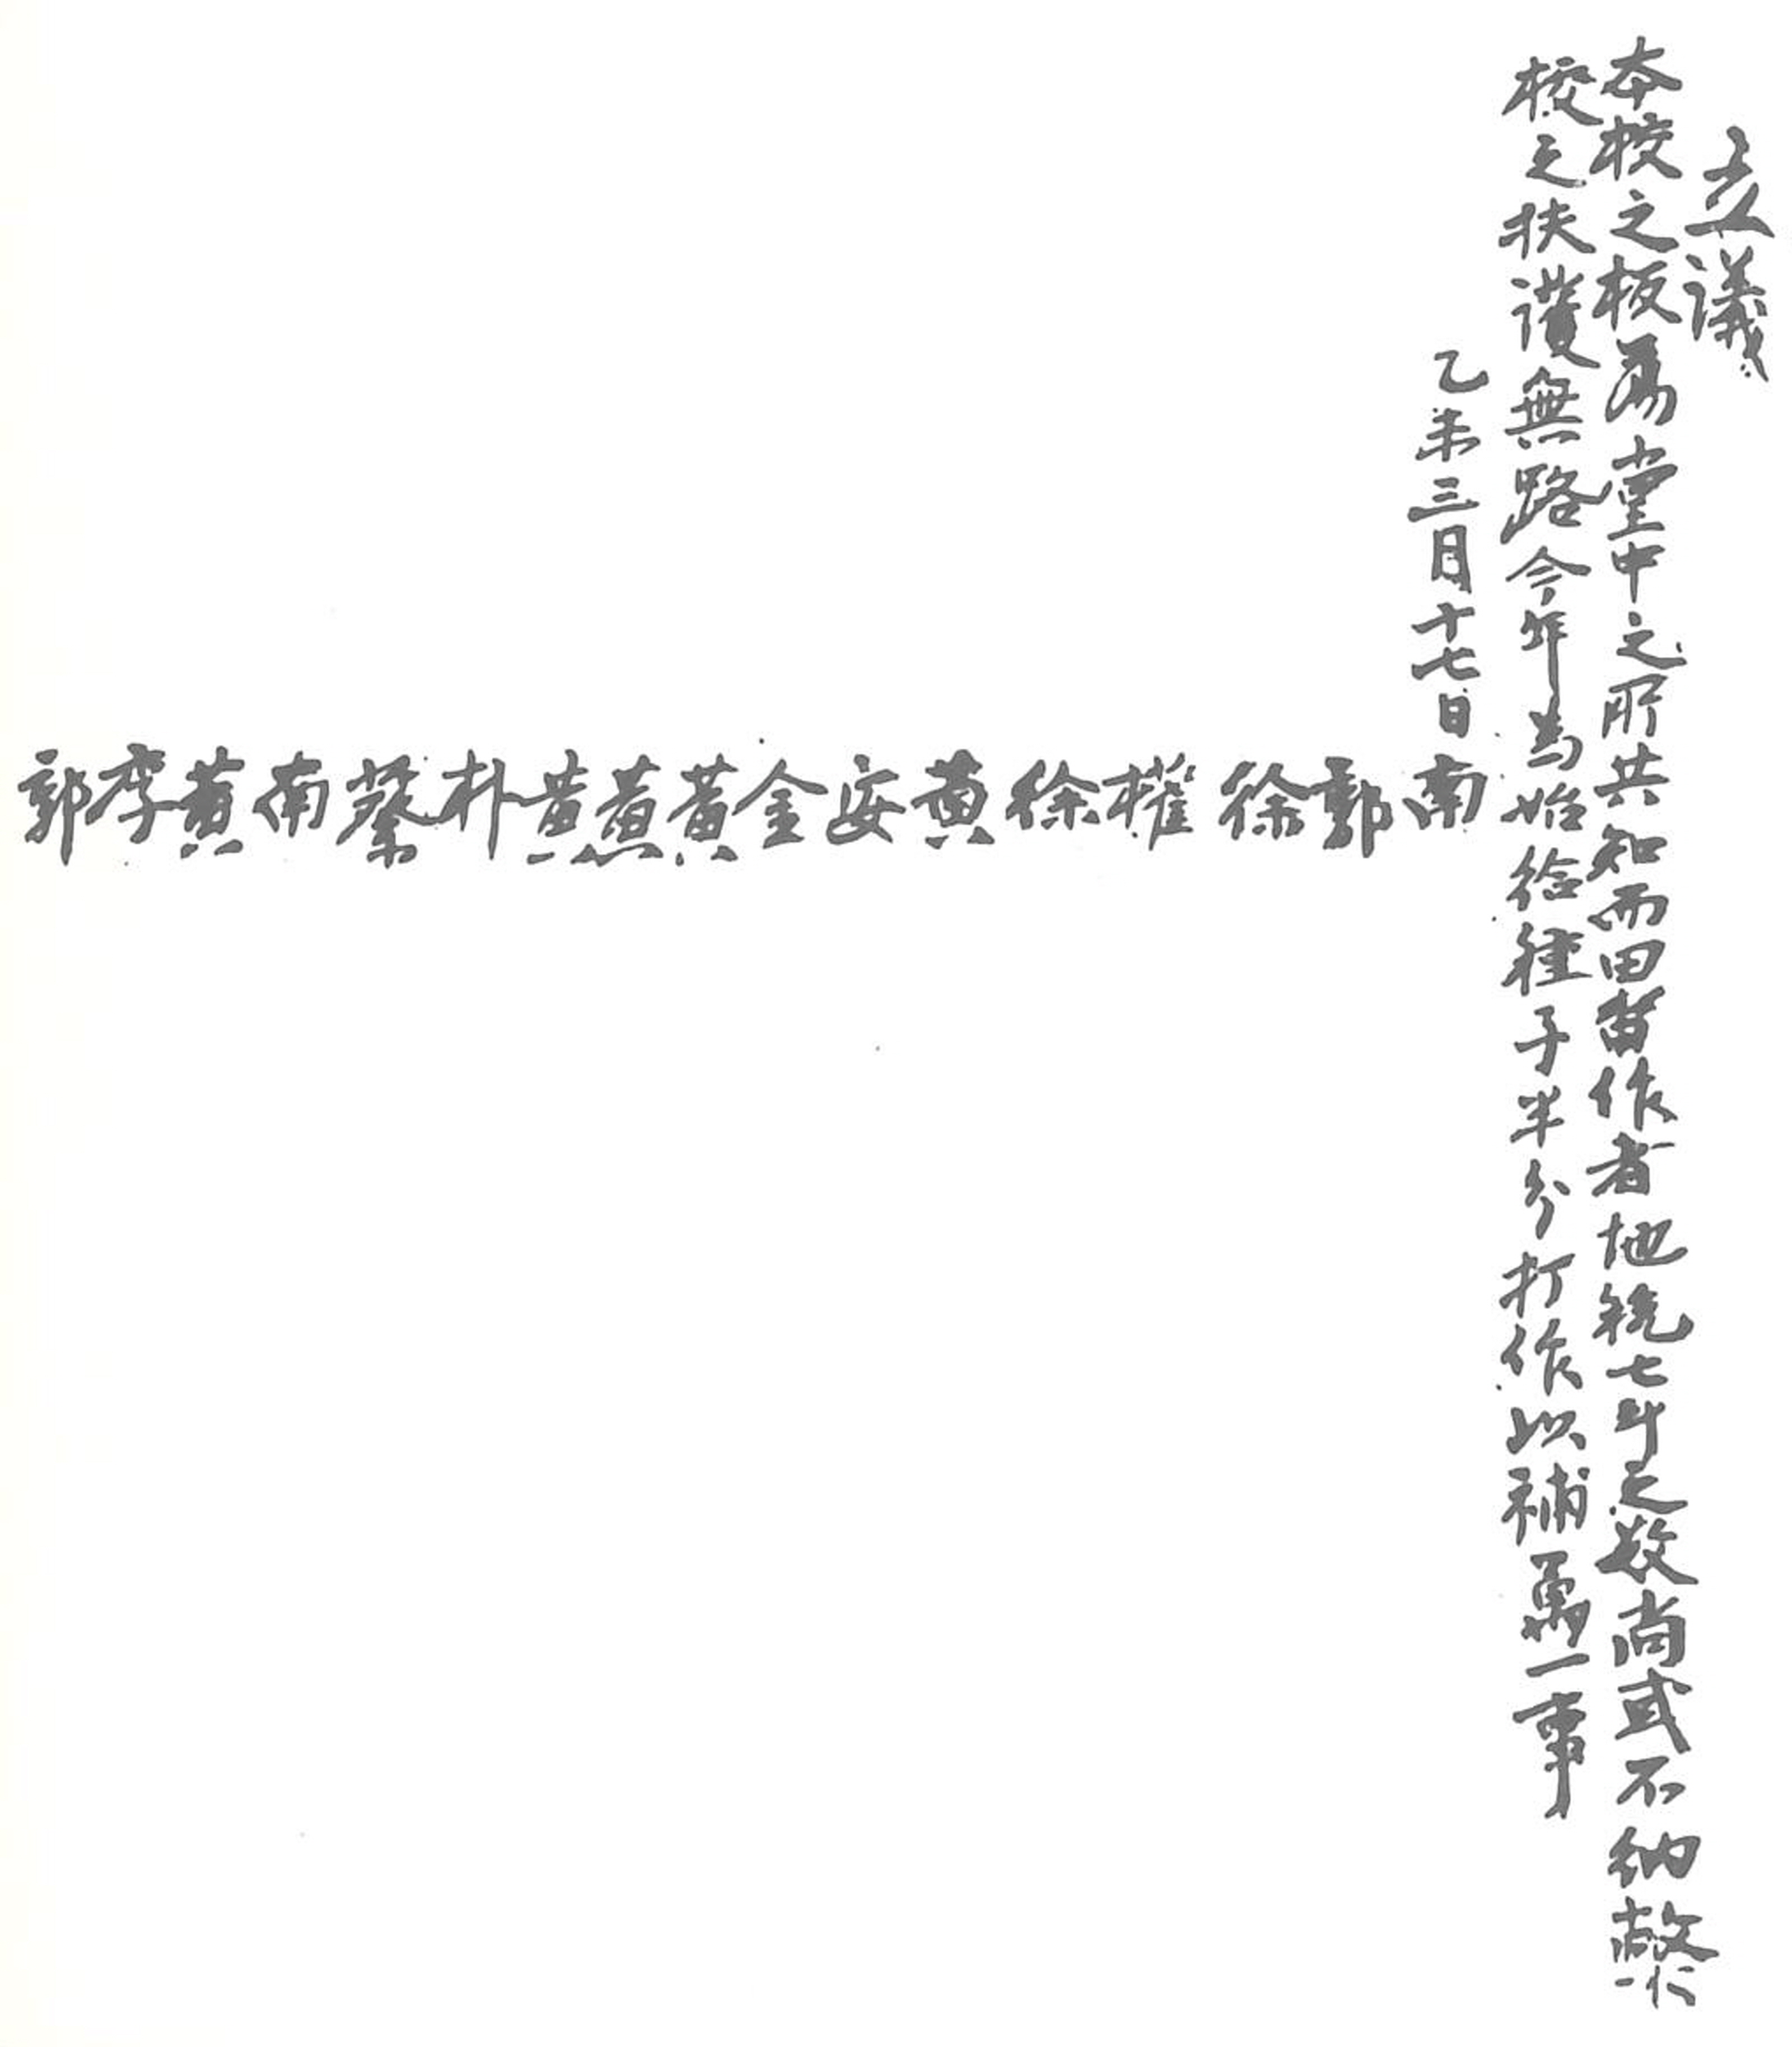 立議
本校之板爲堂中之所共知而田畓作者地稅七斗之數尚或不納故
校之扶護無路今年爲始給種子半分打作以補萬一事
乙未三月十七日
南 郭 徐 權 徐 黃 安 金 黃 黃 黃 朴 蔡 南 黃 李 郭